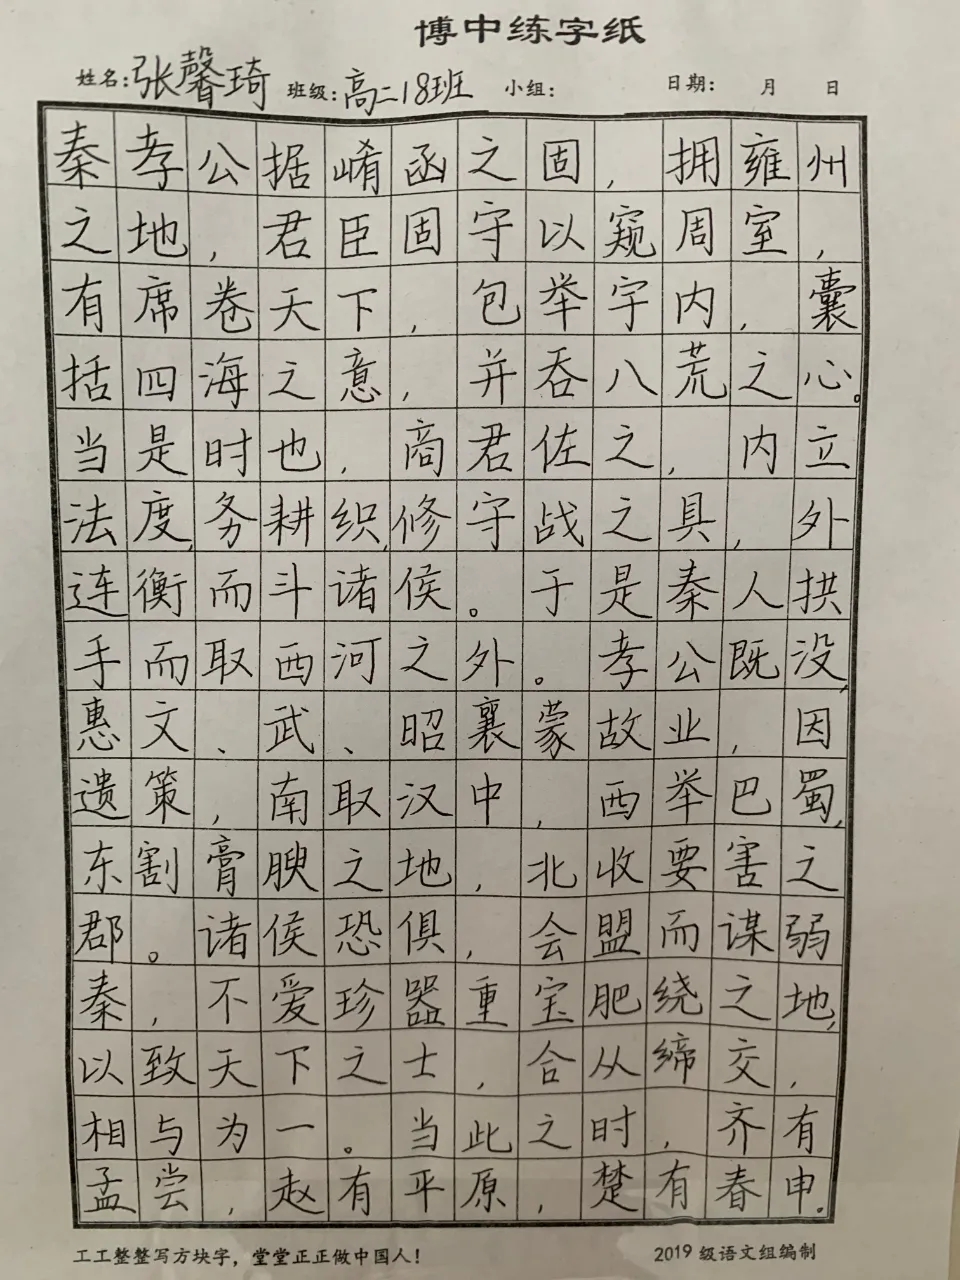 博中练字纸
姓名：张馨琦 班级：高二18班 小组： 日期： 月 日
秦孝公据崤函之固，拥雍州
之地，君臣固守以窥周室，
有席卷天下，包举宇内，囊
括四海之意，并吞八荒之心。
当是时也，商君佐之，内立
法度，务耕织，修守战之具，外
连衡而斗诸侯。于是秦人拱
手而取西河之外。孝公既没，
惠文、武、昭襄蒙故业，因
遗策，南取汉中，西举巴蜀，
东割膏腴之地，北收要害之
郡。诸侯恐俱，会盟而谋弱
秦，不爱珍器重宝肥绕之地，
以致天下之士，合从缔交，
相与为一。当此之时，齐有
孟尝，赵有平原，楚有春申。
工工整整写方块字，堂堂正正做中国人！ 2019级语文组编制